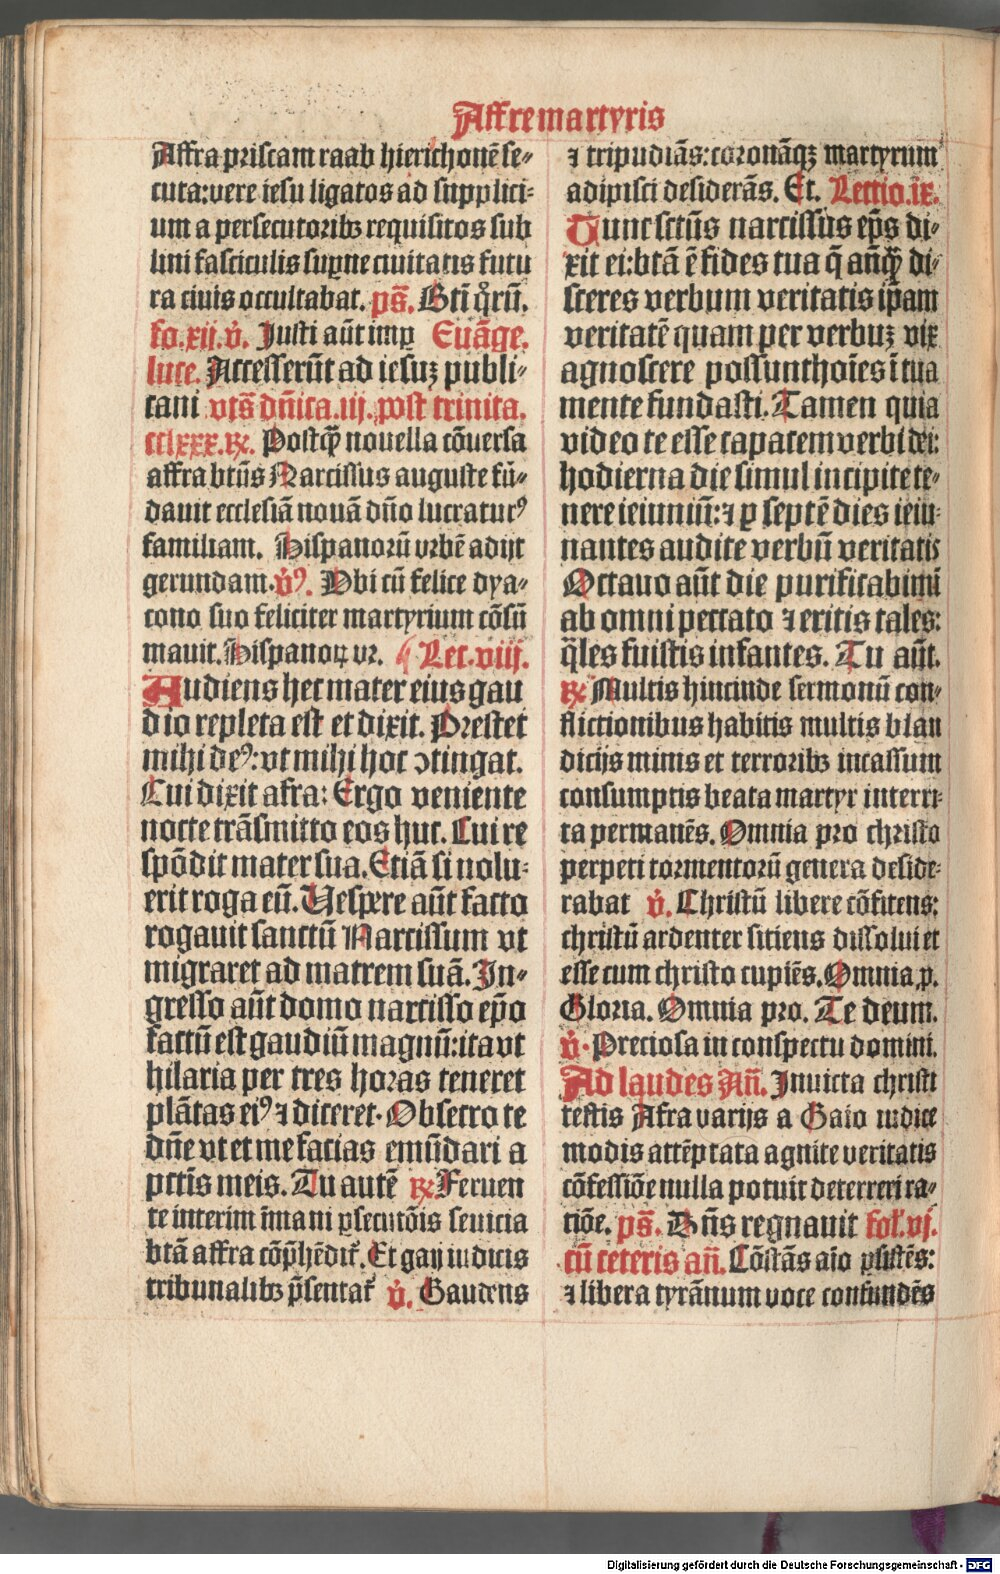 Affre martyris
Affra priscam raab hierichontē se⸗
cuta: vere iesu ligatos ad supplici⸗
um a persecutoribꝫ requisitos sub
lini fasciculis supne ciuitatis futu
ra ciuis occultabat. ps̄. Bti q̊rū.
fo. xij. v̊. Justi aūt imp Euāge.
luce. Accesserūt ad iesuꝫ publi⸗
cani vts̄ dn̄ica. iij. post trinita.
cclxxx. ꝶ. Postqꝫ nouella cōuersa
affra btūs Narcissus auguste fū⸗
dauit ecclesiā nouā dn̄o lucraturꝰ
familiam. Hispanorū vrbē adijt
gerundam. v̊ꝰ. Vbi cū felice dya⸗
cono suo feliciter martyrium cōsū
mauit. Hispanoꝝ vr. ¶ Lec. viij.
Audiens hec mater eius gau
dio repleta est et dixit. Prestet
mihi deꝰ: vt mihi hoc ↄtingat.
Cui dixit afra: Ergo veniente
nocte trāsmitto eos huc. Cui re
spōdit mater sua. Etiā si nolu⸗
erit roga eū. Uespere aūt facto
rogauit sanctū Narcissum vt
migraret ad matrem suā. In⸗
gresso aūt domo narcisso ep̄o
factū est gaudiū magnū: ita vt
hilaria per tres horas teneret
plātas eiꝰ ⁊ diceret. Obsecro te
dn̄e vt et me facias emūdari a
pctīs meis. Tu autē ꝶ Feruen
te interim īmani ꝑsecutōis seuicia
btā affra cōp̄hēdit᷑. Et gaij iudicis
tribunalibꝫ p̄sentat᷑ v̊. Gaudens
⁊ tripudiās: coronāqꝫ martyrum
adipisci desiderās. Et. Lectio. ix.
Tunc sctūs narcissus ep̄s di⸗
xit ei: btā ē fides tua q̄ anqꝫ di⸗
sceres verbum veritatis ip̄am
veritatē quam per verbuꝫ vix
agnoscere possunt hoīes ī tua
mente fundasti. Tamen quia
video te esse capacem verbi dei:
hodierna die simul incipite te⸗
nere ieiuniū: ⁊ ꝑ septē dies ieiu⸗
nantes audite verbū veritatis
Octauo aūt die purificabimū
ab omni peccato ⁊ eritis tales:
q̄les fuistis infantes. Tu aūt.
ꝶ Multis hincinde sermonū con⸗
flictionibus habitis multis blan
dicijs minis et terroribꝫ incassum
consumptis beata martyr interri⸗
ta permanēs. Omnia pro christo
perpeti tormentorū genera deside⸗
rabat v̊. Christū libere cōfitens:
christū ardenter sitiens dissolui et
esse cum christo cupiēs. Omnia. p.
Gloria. Omnia pro. Te deum.
v̊. Preciosa in conspectu domini.
Ad laudes Añ. Inuicta christi
testis Afra varijs a Gaio iudice
modis attēptata agnite veritatis
cōfessiōe nulla potuit deterreri ra⸗
tiōe. ps̄. Dn̄s regnauit fol. vj.
cū ceteris añ. Cōstās aīo ꝑsistēs:
⁊ libera tyrānum voce confundēs
Digitalisierung gefördert durch die Deutsche Forschungsgemeinschaft - DFG